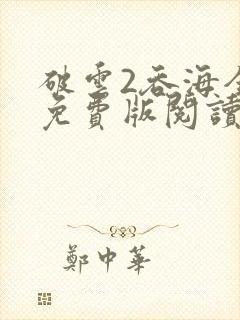 破雲2吞海全
免費版閱讀
鄭中華